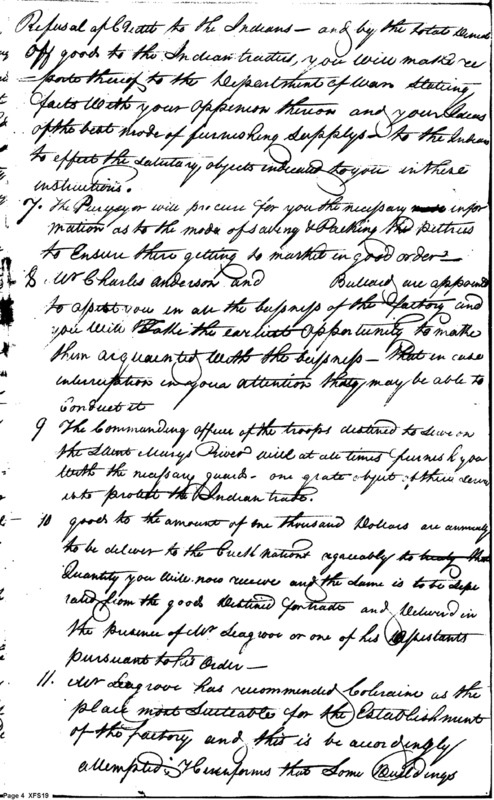 Refusal of Credit to the Indians — and by the total denial
Off goods to the Indian traders, you will make re
-ports thereof to the Department of War stating
facts with your oppinion theron and your Ideas
of the best mode of furnishing supplys — to the Indians
to effect the salutary objects indicated to you in these
instructions.
7. The Purveyor will procure for you the necessary infor
mation as to the mode of saving & Packing the Peltries
to Ensure there getting to market in good order —
8 Mr Charles Anderson and Bullard are appoint
to assist you in all the bussness of the factory and
you will take the earliest opportunity to make
them acquainted with the bussness — that in case
interruption in your attention they may be able to
Conduct it
9 The Commanding officer of the troops destined to serve on
the Saint Marys River will at all times furnish you
with the necessary guards - one grate object of there
is to protect the Indian trade.
10 goods to the amount of one thousand Dollars are annualy
to be deliver to the Creek nations agreeably to
Quantity you will now receive and the same is to be sepe
rated from the goods destined for trade and delivered in
the presence of Mr Seagrove or one of his Assistants
pursuant to his Order —
11. Mr Seagrove has recommended Coleraine as the
place most Suiteable for the Establishment
of the factory and this is be accordingly
attempted; He informs that Some Buildings
Page 4 XFS19